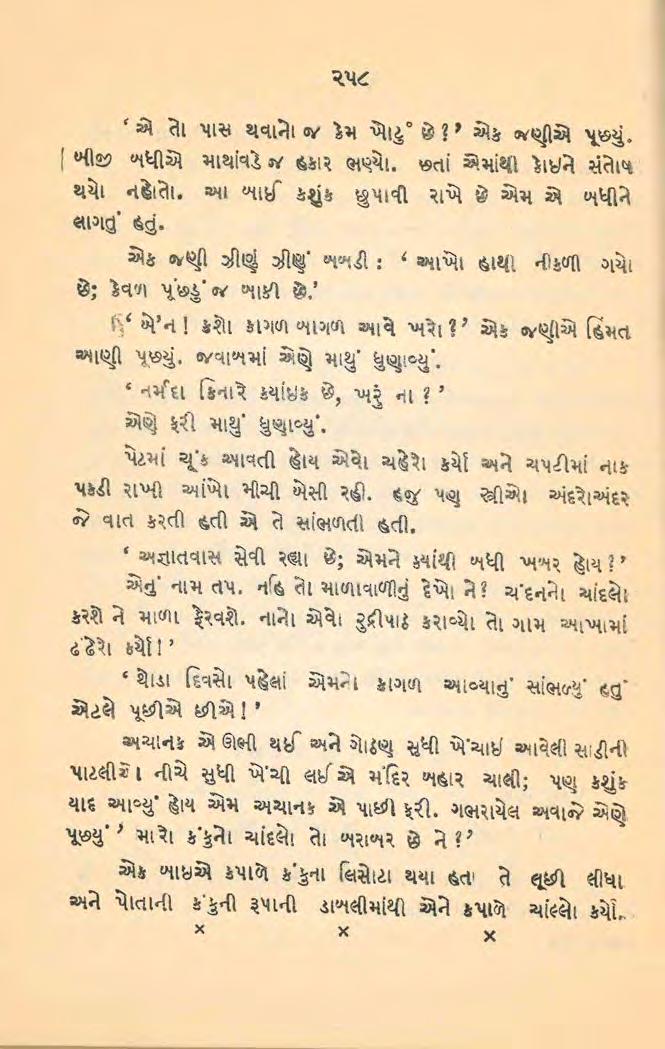 ૨૫૮
‘ એ તો પાસ થવાનો જ કેમ ખોટું છે ? ’ એક જણીએ પૂછયું.
બીજી બધીએ માથાંવડે જ હકાર ભણ્યો. છતાં એમાંથી કોઇને સંતોષ
થયો નહોતો. આ બાઈ કશુંક છુપાવી રાખે છે એમ એ બધીને
લાગતું હતું.
એક જણી ઝીણું ઝીણું બબડી : ‘ આખો હાથી નીકળી ગયો
છે; કેવળ પૂંછડું જ બાકી છે.’
‘ બે’ન ! કશો કાગળ બાગળ આવે ખરો ? ’ એક જણીએ હિંમત
આણી પૂછયું. જવાબમાં એણે માથું ધુણાવ્યું.
‘ નર્મદા કિનારે કયાંઇક છે, ખરૂં ના ? ’
એણે ફરી માથું ધુણાવ્યું.
પેટમાં ચૂંક આવતી હોય એવો ચહેરો કર્યો અને ચપટીમાં નાક
પકડી રાખી આંખો મીચી બેસી રહી. હજુ પણ સ્ત્રીઓ અંદરોઅંદર
જે વાત કરતી હતી એ તે સાંભળતી હતી.
‘ અજ્ઞાતવાસ સેવી રહ્યા છે; એમને કયાંથી બધી ખબર હોય ? ’
એનું નામ તપ. નહિ તો માળાવાળીનું દેખો ને ? ચંદનનો ચાંદલો
કરશે ને માળા ફેરવશે. નાનો એવો રુદ્રીપાઠ કરાવ્યો તો ગામ આખામાં
ઢંઢેરો કર્યો ! ’
‘ થોડા દિવસો પહેલાં એમનો કાગળ આવ્યાનું સાંભળ્યું હતું
એટલે પૂછીએ છીએ ! ’
અચાનક એ ઊભી થઈ અને ગોઠણ સુધી ખેંચાઇ આવેલી સાડીની
પાટલીઓ નીચે સુધી ખેંચી લઈ એ મંદિર બહાર ચાલી; પણ કશુંક
યાદ આવ્યું હોય એમ અચાનક એ પાછી ફરી. ગભરાયેલ અવાજે એણે
પૂછયું ’ મારો કંકુનો ચાંદલો તો બરાબર છે ને ? ’
એક બાઇએ કપાળે કંકુના લિસોટા થયા હતા તે લૂછી લીધા
અને પોતાની કંકુની રૂપાની ડાબલીમાંથી એને કપાળે ચાંલ્લો કર્યો.
× × ×